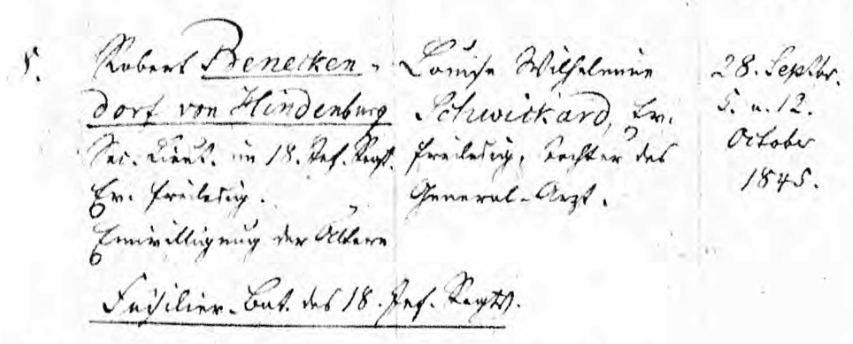 5.
Robert Benecken-
dorf von Hindenburg
Sec. Lieut. im 18. Inf. Regt.
Ev. freiledig.
Einwilligung der Ältern
Louise Wilhelmine
Schwickard, Ev.
freiledig, Tochter des
General-Arzt.
28. Septbr.
5. u. 12.
October
1845.
Füsilier-Bat. des 18. Inf. Regts.